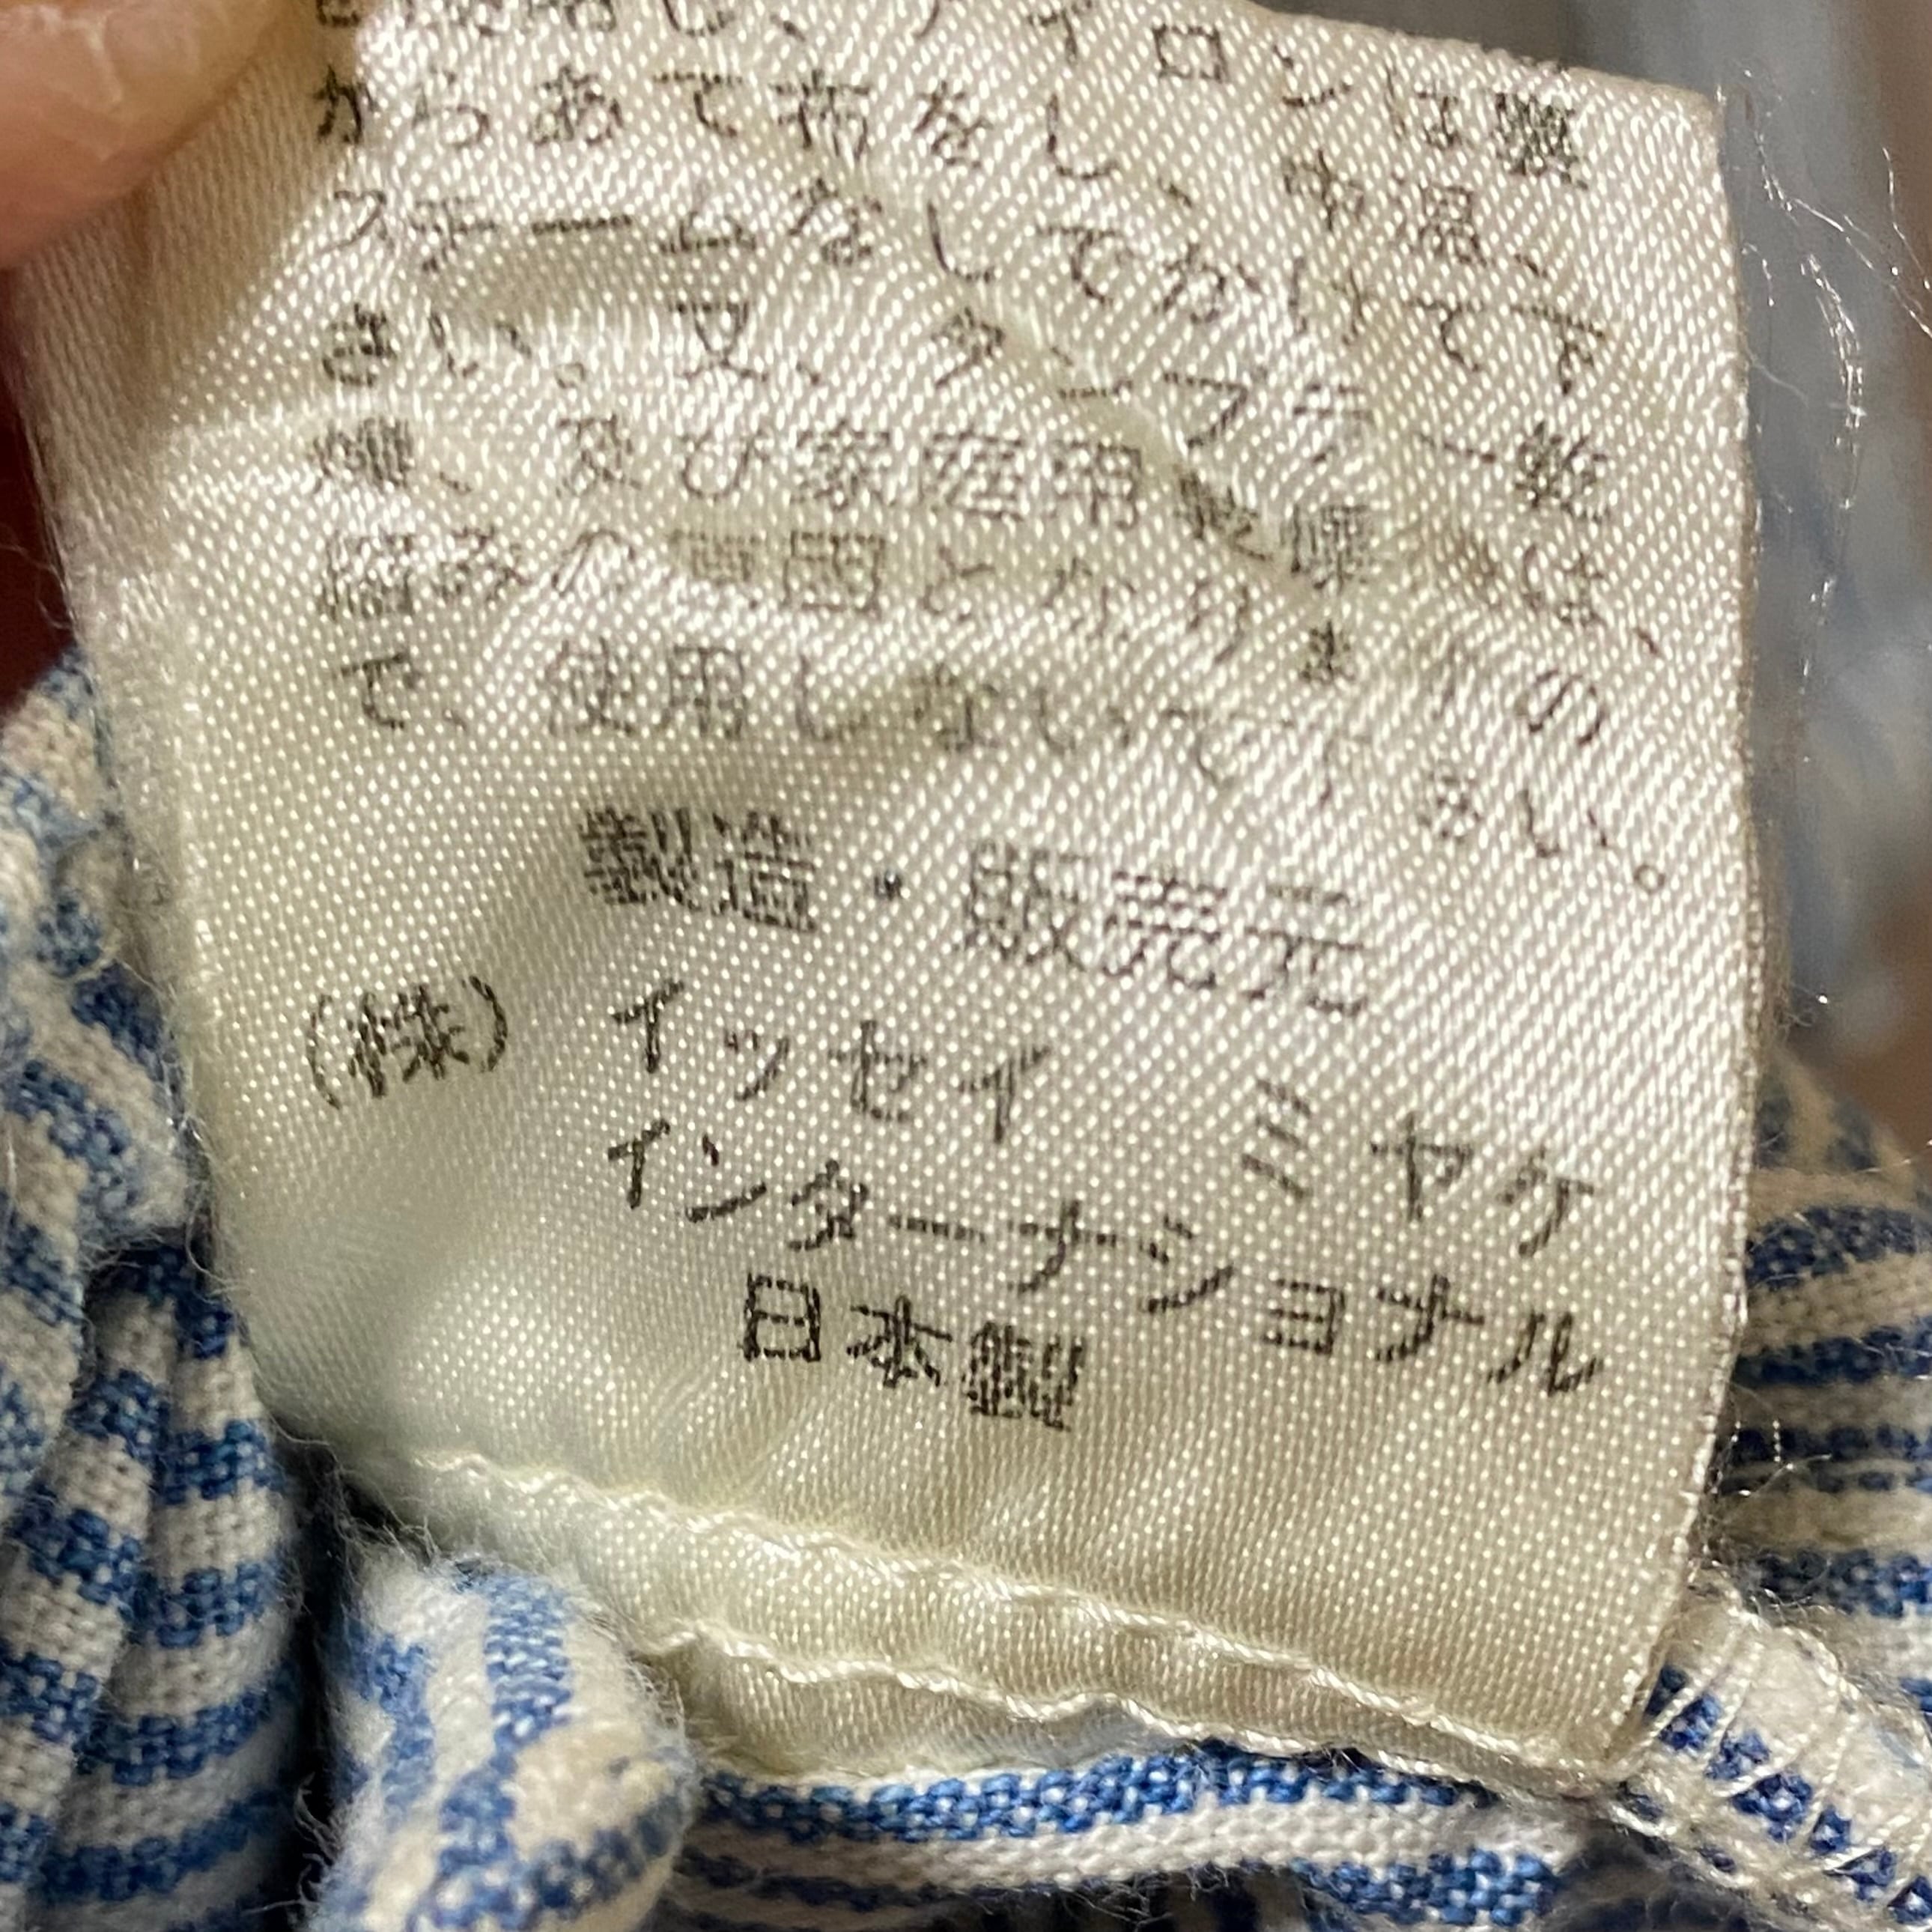 し、アイロンは裏
からあて布をし、中温にて
フォームをしてかけて下
さい。又、タンブラー乾
燥、及び家庭用乾燥は、
縮みの原因となりますの
で、使用しないで下さい。
製造・販売元
(株) イッセイ ミヤケ
インターナショナル
日本製